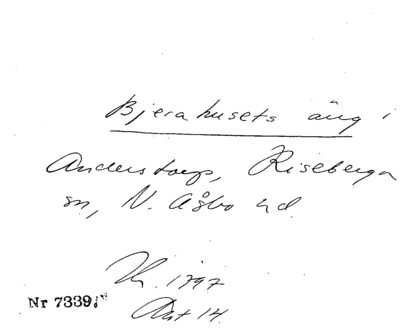 Bjerahusets äng i
Anderstorp, Riseberga
sn, N. Åsbo hd.
1797
Nr 7339:
Akt 14.